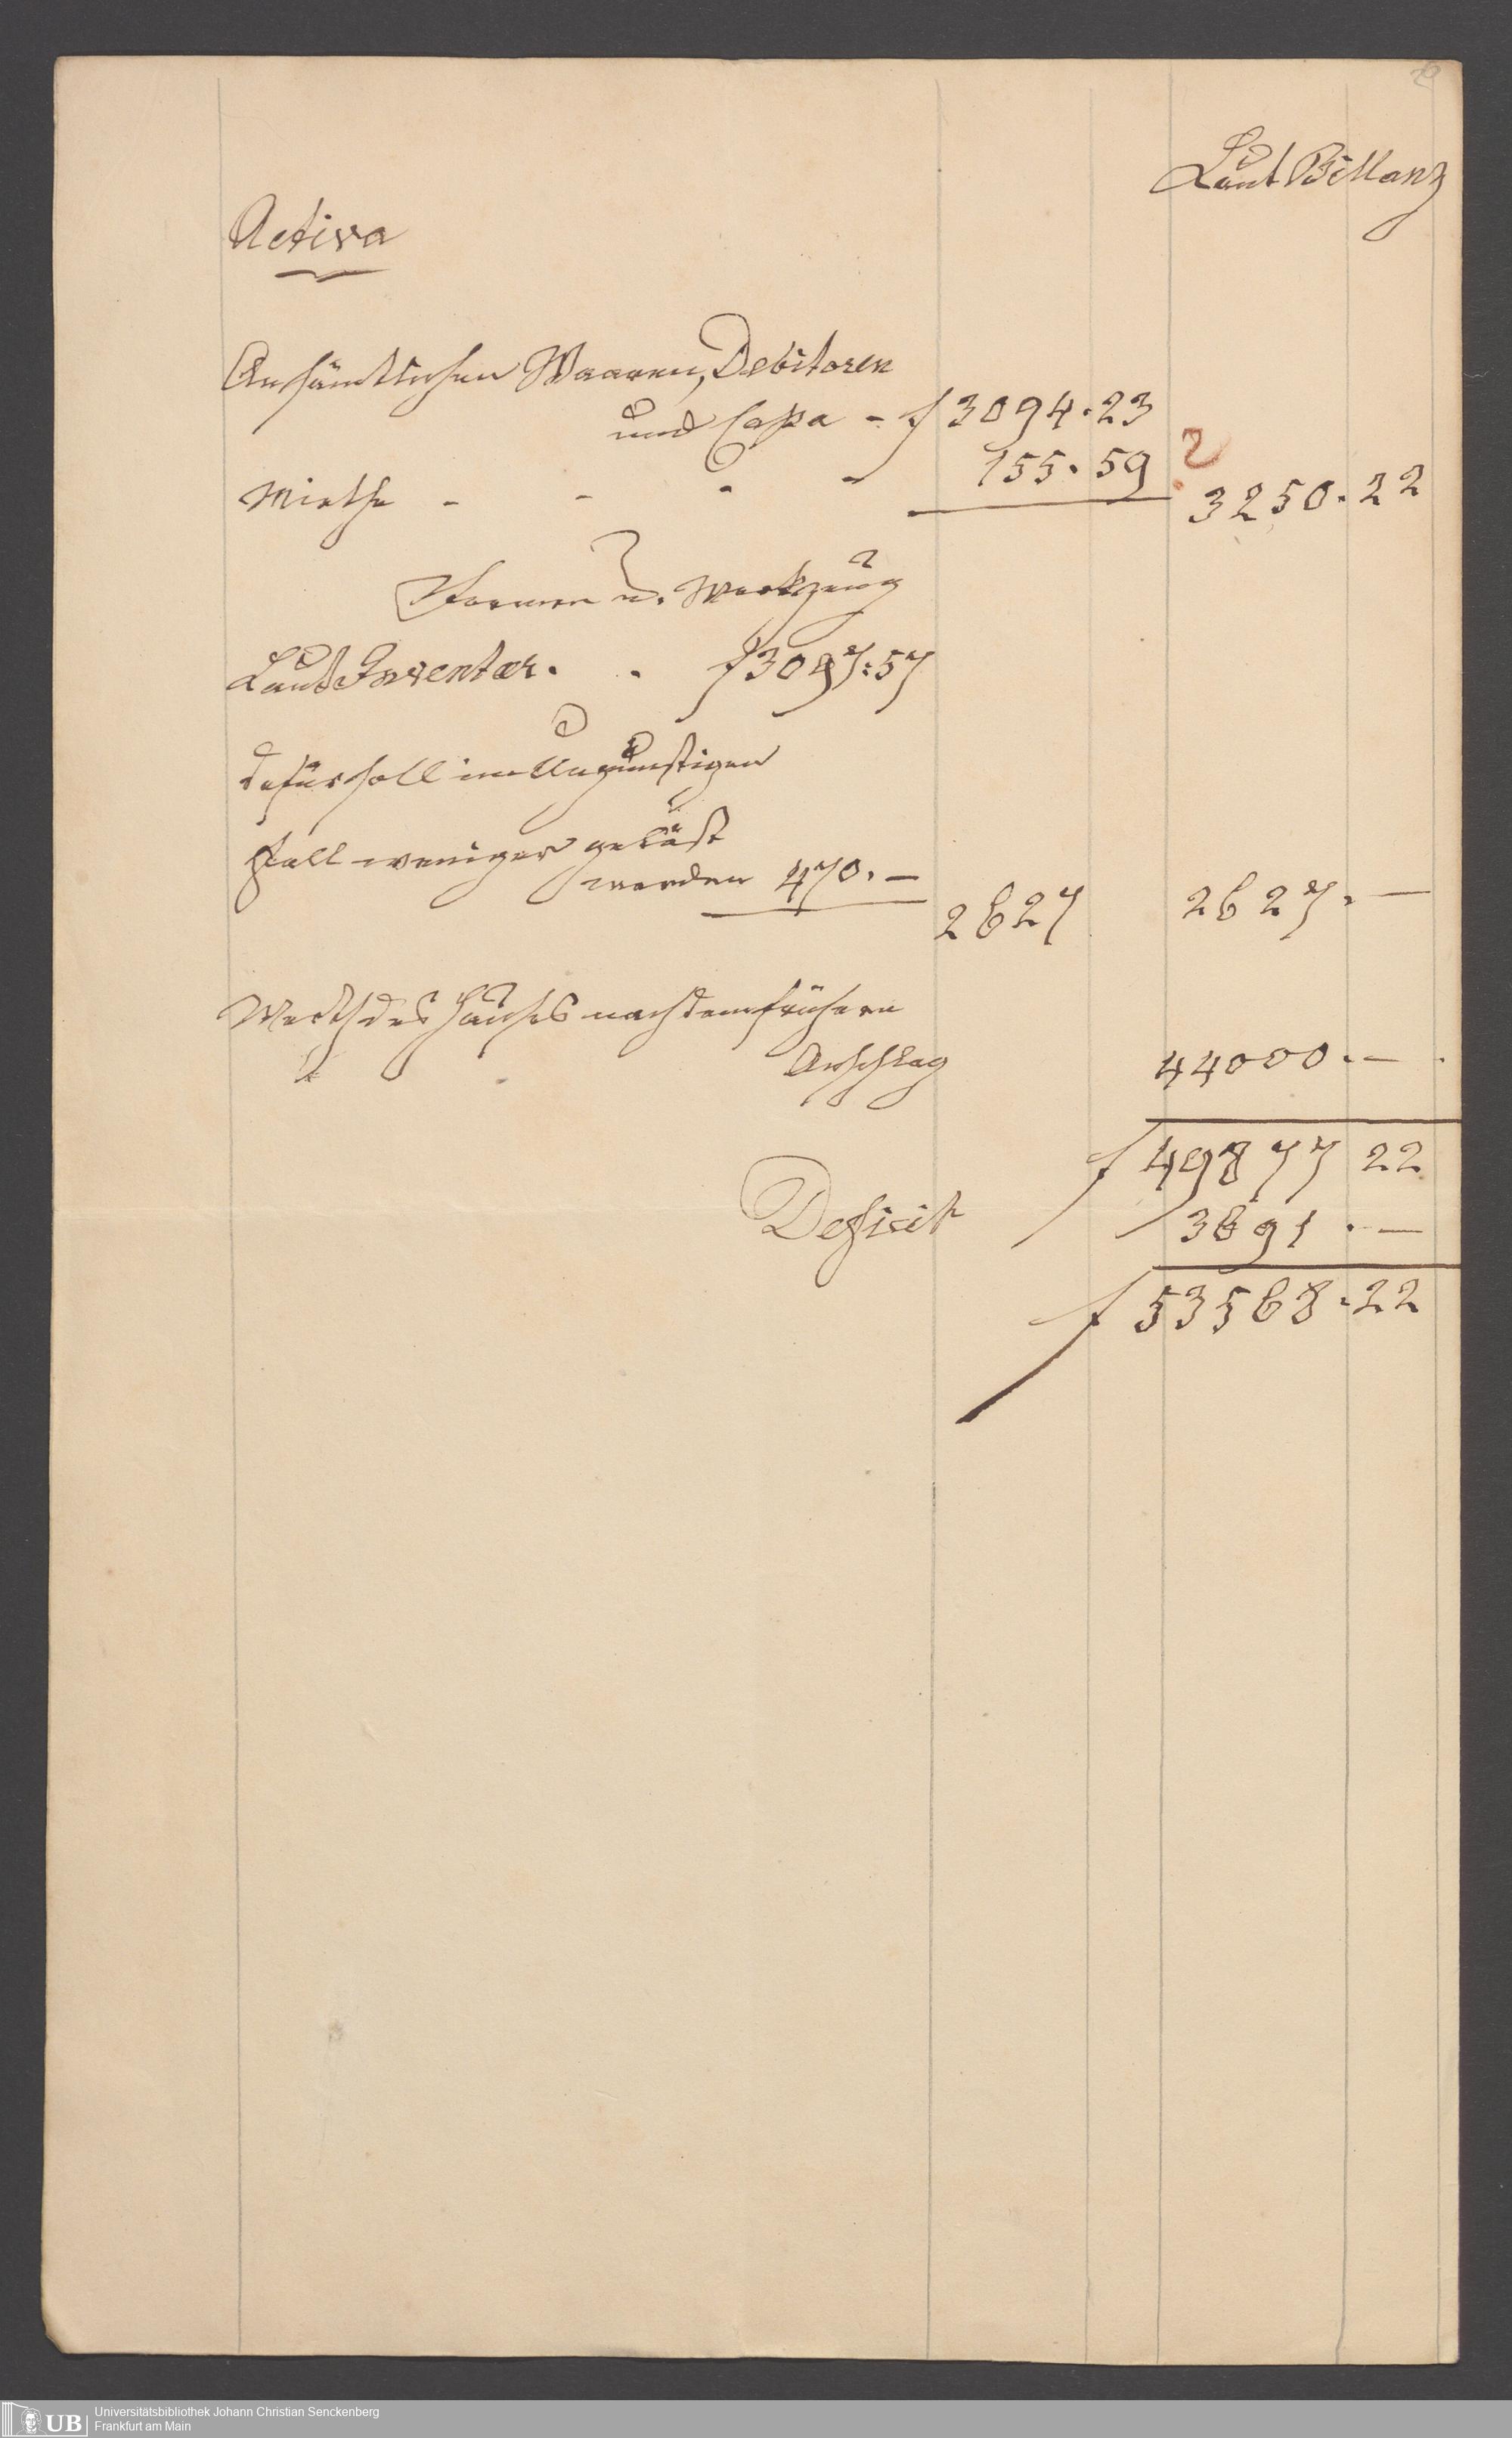 Laut Billanz
Activa
An sämtlichen Waaren, Debitoren
und Cassa - f 3094.23
Miethe - - - - 155.59 ? 3250.22
Formen u. Werkzeug
Laut Inventar. . f 3097:57
dafür soll im Ungünstigen
Fall weniger gelöst
werden 470.— 2627 2627.—
Werth des Hauses nach dem frühern
Anschlag 44000.—
f 49877 22
Deficit 3691.—
f 53568.22
UB Universitätsbibliothek Johann Christian Senckenberg
Frankfurt am Main